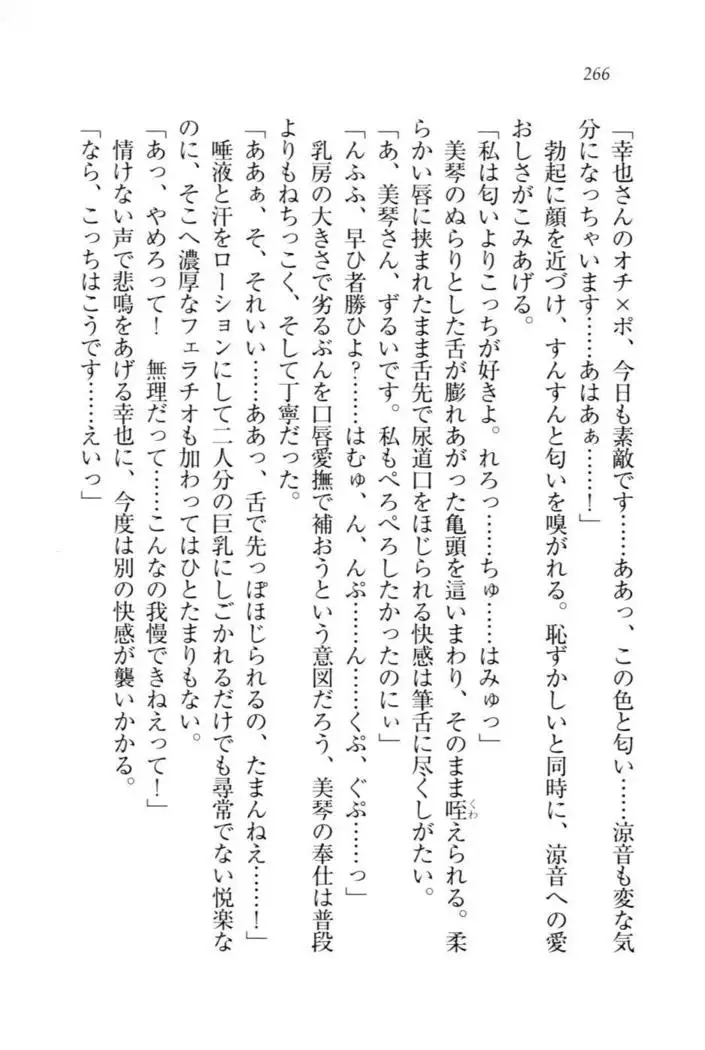 266
「幸也さんのオチ×ポ、今日も素敵です……ああっ、この色と匂い……涼音も変な気
分になっちゃいます……あはあぁ……！」
勃起に顔を近づけ、すんすんと匂いを嗅がれる。恥ずかしいと同時に、涼音への愛
おしさがこみあげる。
「私は匂いよりこっちが好きよ。れろっ……ちゅ……はみゅっ」
美琴のぬらりとした舌が膨れあがった亀頭を這いまわり、そのまま咥えられる。柔
らかい唇に挟まれたまま舌先で尿道口をほじられる快感は筆舌に尽くしがたい。
「あ、美琴さん、ずるいです。私もぺろぺろしたかったのにぃ」
「んふふ、早ひ者勝ひよ？……はむゅ、ん、んぷ……ん……くぷ、ぐぷ……っ」
乳房の大きさで劣るぶんを口唇愛撫で補おうという意図だろう、美琴の奉仕は普段
よりもねちっこく、そして丁寧だった。
「ああぁ、そ、それいい……ああっ、舌で先っぽほじられるの、たまんねえ……！」
唾液と汗をローションにして二人分の巨乳にしごかれるだけでも尋常でない悦楽な
のに、そこへ濃厚なフェラチオも加わってはひとたまりもない。
「あっ、やめろって！　無理だって……こんなの我慢できねえって！」
情けない声で悲鳴をあげる幸也に、今度は別の快感が襲いかかる。
「なら、こっちはこうです……えいっ」